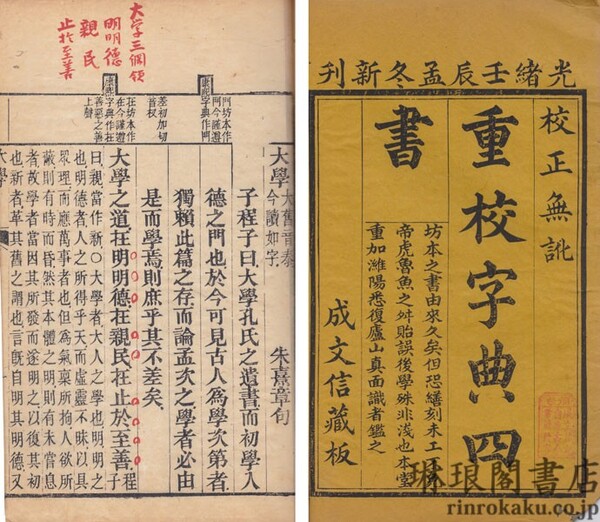 光緒壬辰孟冬新刊
校正無訛
重校字典四
書
坊本之書由來久矣但恐繕刻未工
帝虎魯魚之舛貽誤後學殊非淺也本堂
重加濰陽悉復廬山真面識者鑑之
成文信藏板
琳琅閣書店
rinrokaku.co.jp
大学三個領
明明德
親民
止於至善
字典作門
差初加切
字典作在
善惡之善
上聲
大學
大舊音泰
今讀如字
朱熹章句
子程子曰大學孔氏之遺書而初學入
德之門也於今可見古人為學次第者
獨賴此篇之存而論孟次之學者必由
是而學焉則庶乎其不差矣
大學之道在明明德在親民在止於至善程子
曰親當作新○大學者大人之學也明明之
也明德者人之所得乎天而虛靈不昧以具
眾理而應萬事者也但為氣稟所拘人欲所
蔽則有時而昏然其本體之明則有未嘗息
者故學者當因其所發而遂明之以復其初
也新者革其舊之謂也言既自明其明德又